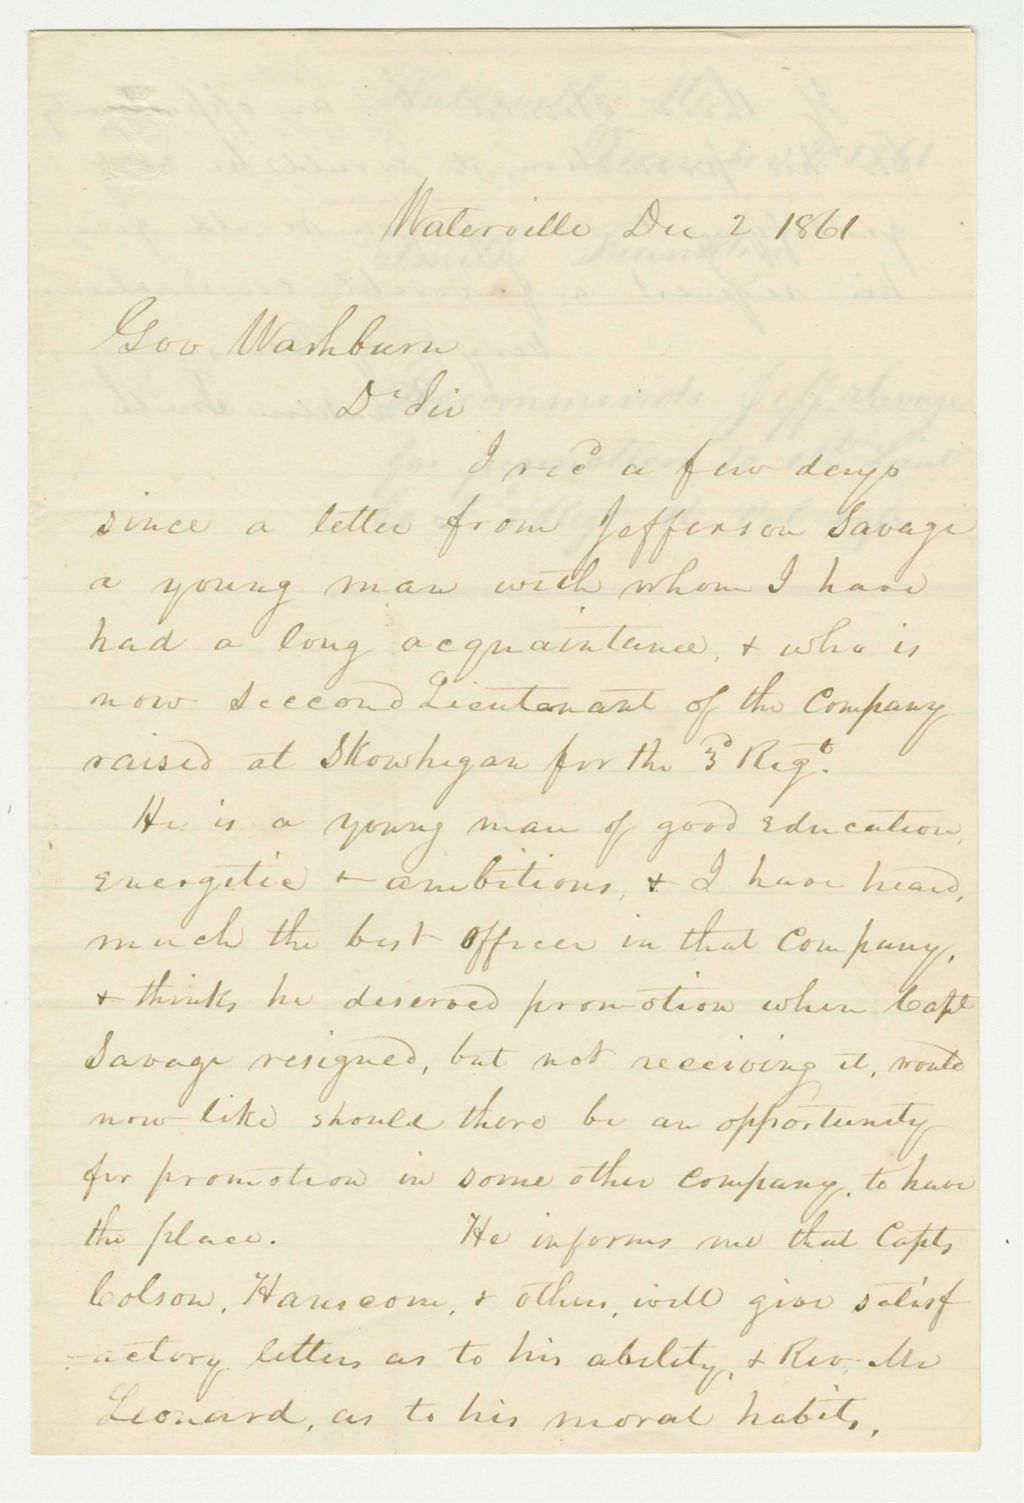 Waterville Dec 2 1861
Gov Washburn
Dr Sir
I recd a few days
since a letter from Jefferson Savage
a young man with whom I have
had a long acquaintance, & who is
now Seccond Lieutenant of the Company
raised at Skowhegan for the 3d Regt.
He is a young man of good education,
energetic & ambitious, & I have heard,
much the best officer in that Company,
& thinks he deserved promotion when Capt
Savage resigned, but not receiving it, would
now like should there be an opportunity
for promotion in some other company, to have
the place. He informs me that Capts
Colson, Hanscom, & others, will give satisf
-actory letters as to his ability, & Rev, Mr
Leonard, as to his moral habits,